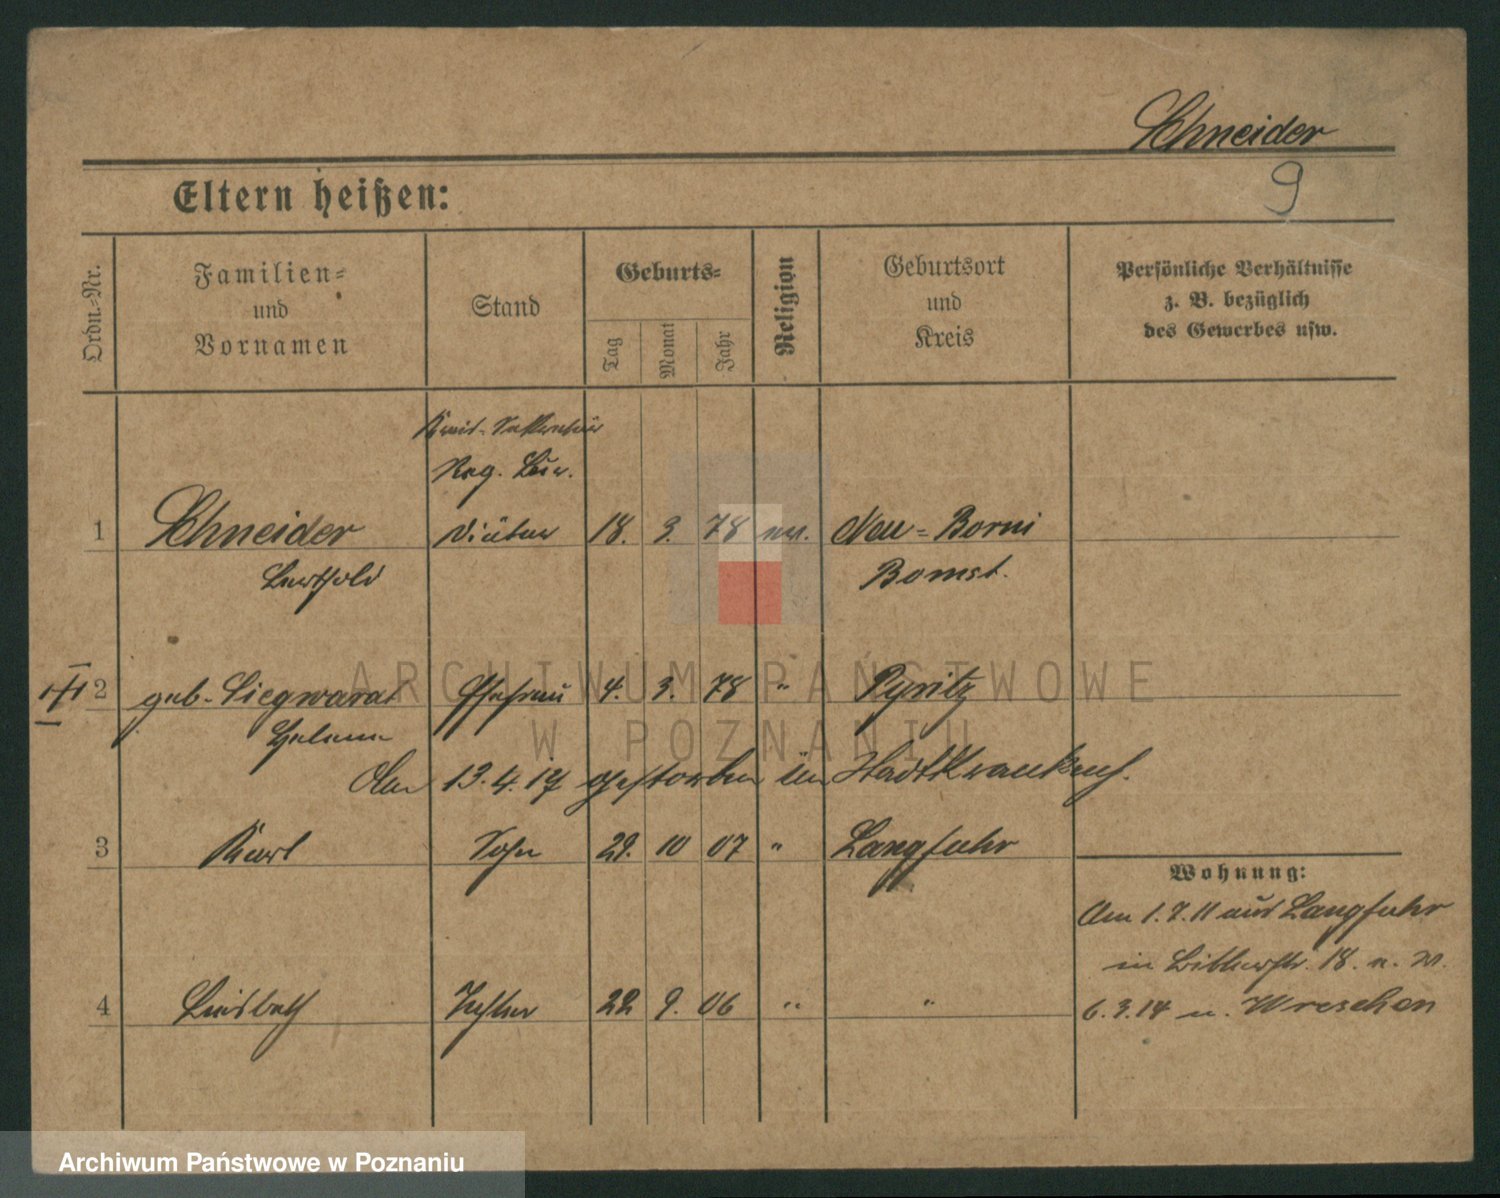 Schneider
9
Eltern heißen:
Ordn.-Nr.
Familien-
und
Vornamen
Stand
Geburts-
Tag
Monat
Jahr
Religion
Geburtsort
und
Kreis
Persönliche Verhältnisse
z. B. bezüglich
des Gewerbes usw.
Reg.
1 Schneider Diätar 18. 3. 78 ev. Neu-Borui
Berthold Bomst.
2 geb. Siegwarat Ehefrau 4. 3. 78 " Pyritz
Helene
Am 13.4.17 gestorben im Stadtkrankenh.
3 Karl Sohn 29. 10 07 " Langfuhr
Wohnung:
Am 1.7.11 aus Langfuhr
in 18. n. W.
4 Liesbeth Tochter 22 9. 06 " " 6.3.14 n. Wreschen
ARCHIWUM PAŃSTWOWE
W POZNANIU
Archiwum Państwowe w Poznaniu